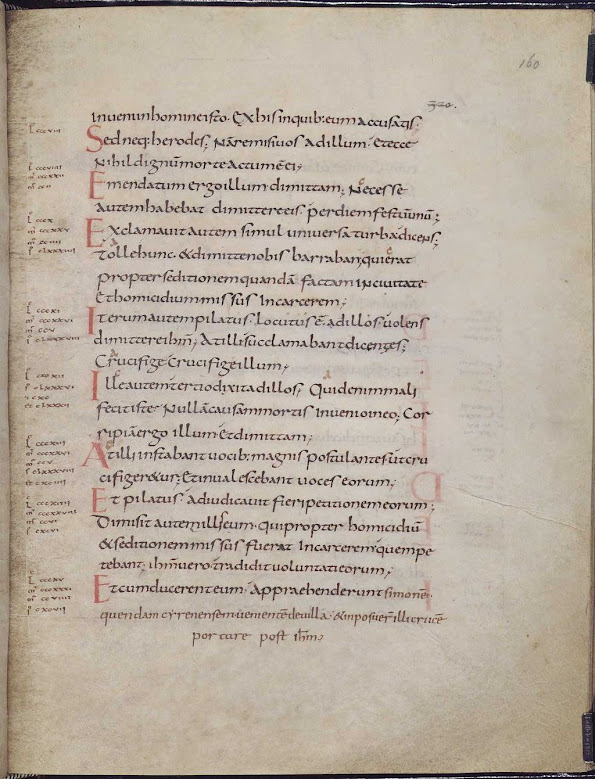 160
320.
inveni in homine isto. Ex his in quib: eum accusatis;
Sed neq: herodes; Nã remisi vos ad illum. Et ecce
Nihil dignũ morte actum ē ei;
Emendatum ergo illum dimittam; Necesse
autem habebat dimittere eis. per diem festũ unũ;
Exclamavit autem simul universa turba dicens;
Tolle hunc. & dimitte nobis barraban; qui erat
propter seditionem quandã factam in civitate
Et homicidium missus in carcerem;
Iterum autem pilatus. Locutus ē. ad illos. volens
dimittere ihm̄; At illi succlamabant dicentes;
Crucifige Crucifige illum;
Ille autem tertio dixit ad illos; Quid enim mali
fecit iste. Nullã causam mortis Invenio in eo; Cor
ripiã ergo illum et dimittam;
At illi instabant vocib: magnis postulantes ut cru
cifiger&ur; Et invalescebant voces eorum;
Et pilatus. Adiudicavit fieri petitionem eorum;
Dimisit autem illis eum. qui propter homicidiũ
& seditionem missus fuerat In carcerem quem pe
tebant. ihm̄ vero. tradidit voluntati eorum;
Et cum ducerent eum. Appraehenderunt simonē.
quendam cyrenensem. venientē de villa. & imposuer̄ illi crucē
portare post ihm̄;